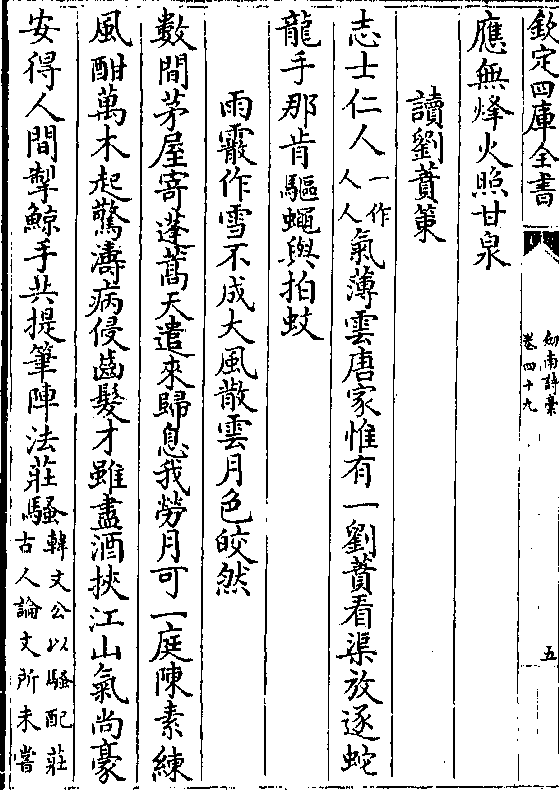 欽定四庫全書
劍南詩稾
卷四十九
五
應無烽火照甘泉
讀劉蕡策
志士仁人一作人人氣薄雲唐家惟有一劉蕡看渠放逐蛇
龍手那肯驅蠅與拍蚊
雨霰作雪不成大風散雲月色皎然
數間茅屋寄蓬蒿天遣來歸息我勞月可一庭陳素練
風酣萬木起驚濤病侵齒髮才雖盡酒挾江山氣尚豪
安得人間掣鯨手共提筆陣法莊騷韓文公以騷配莊古人論文所未嘗